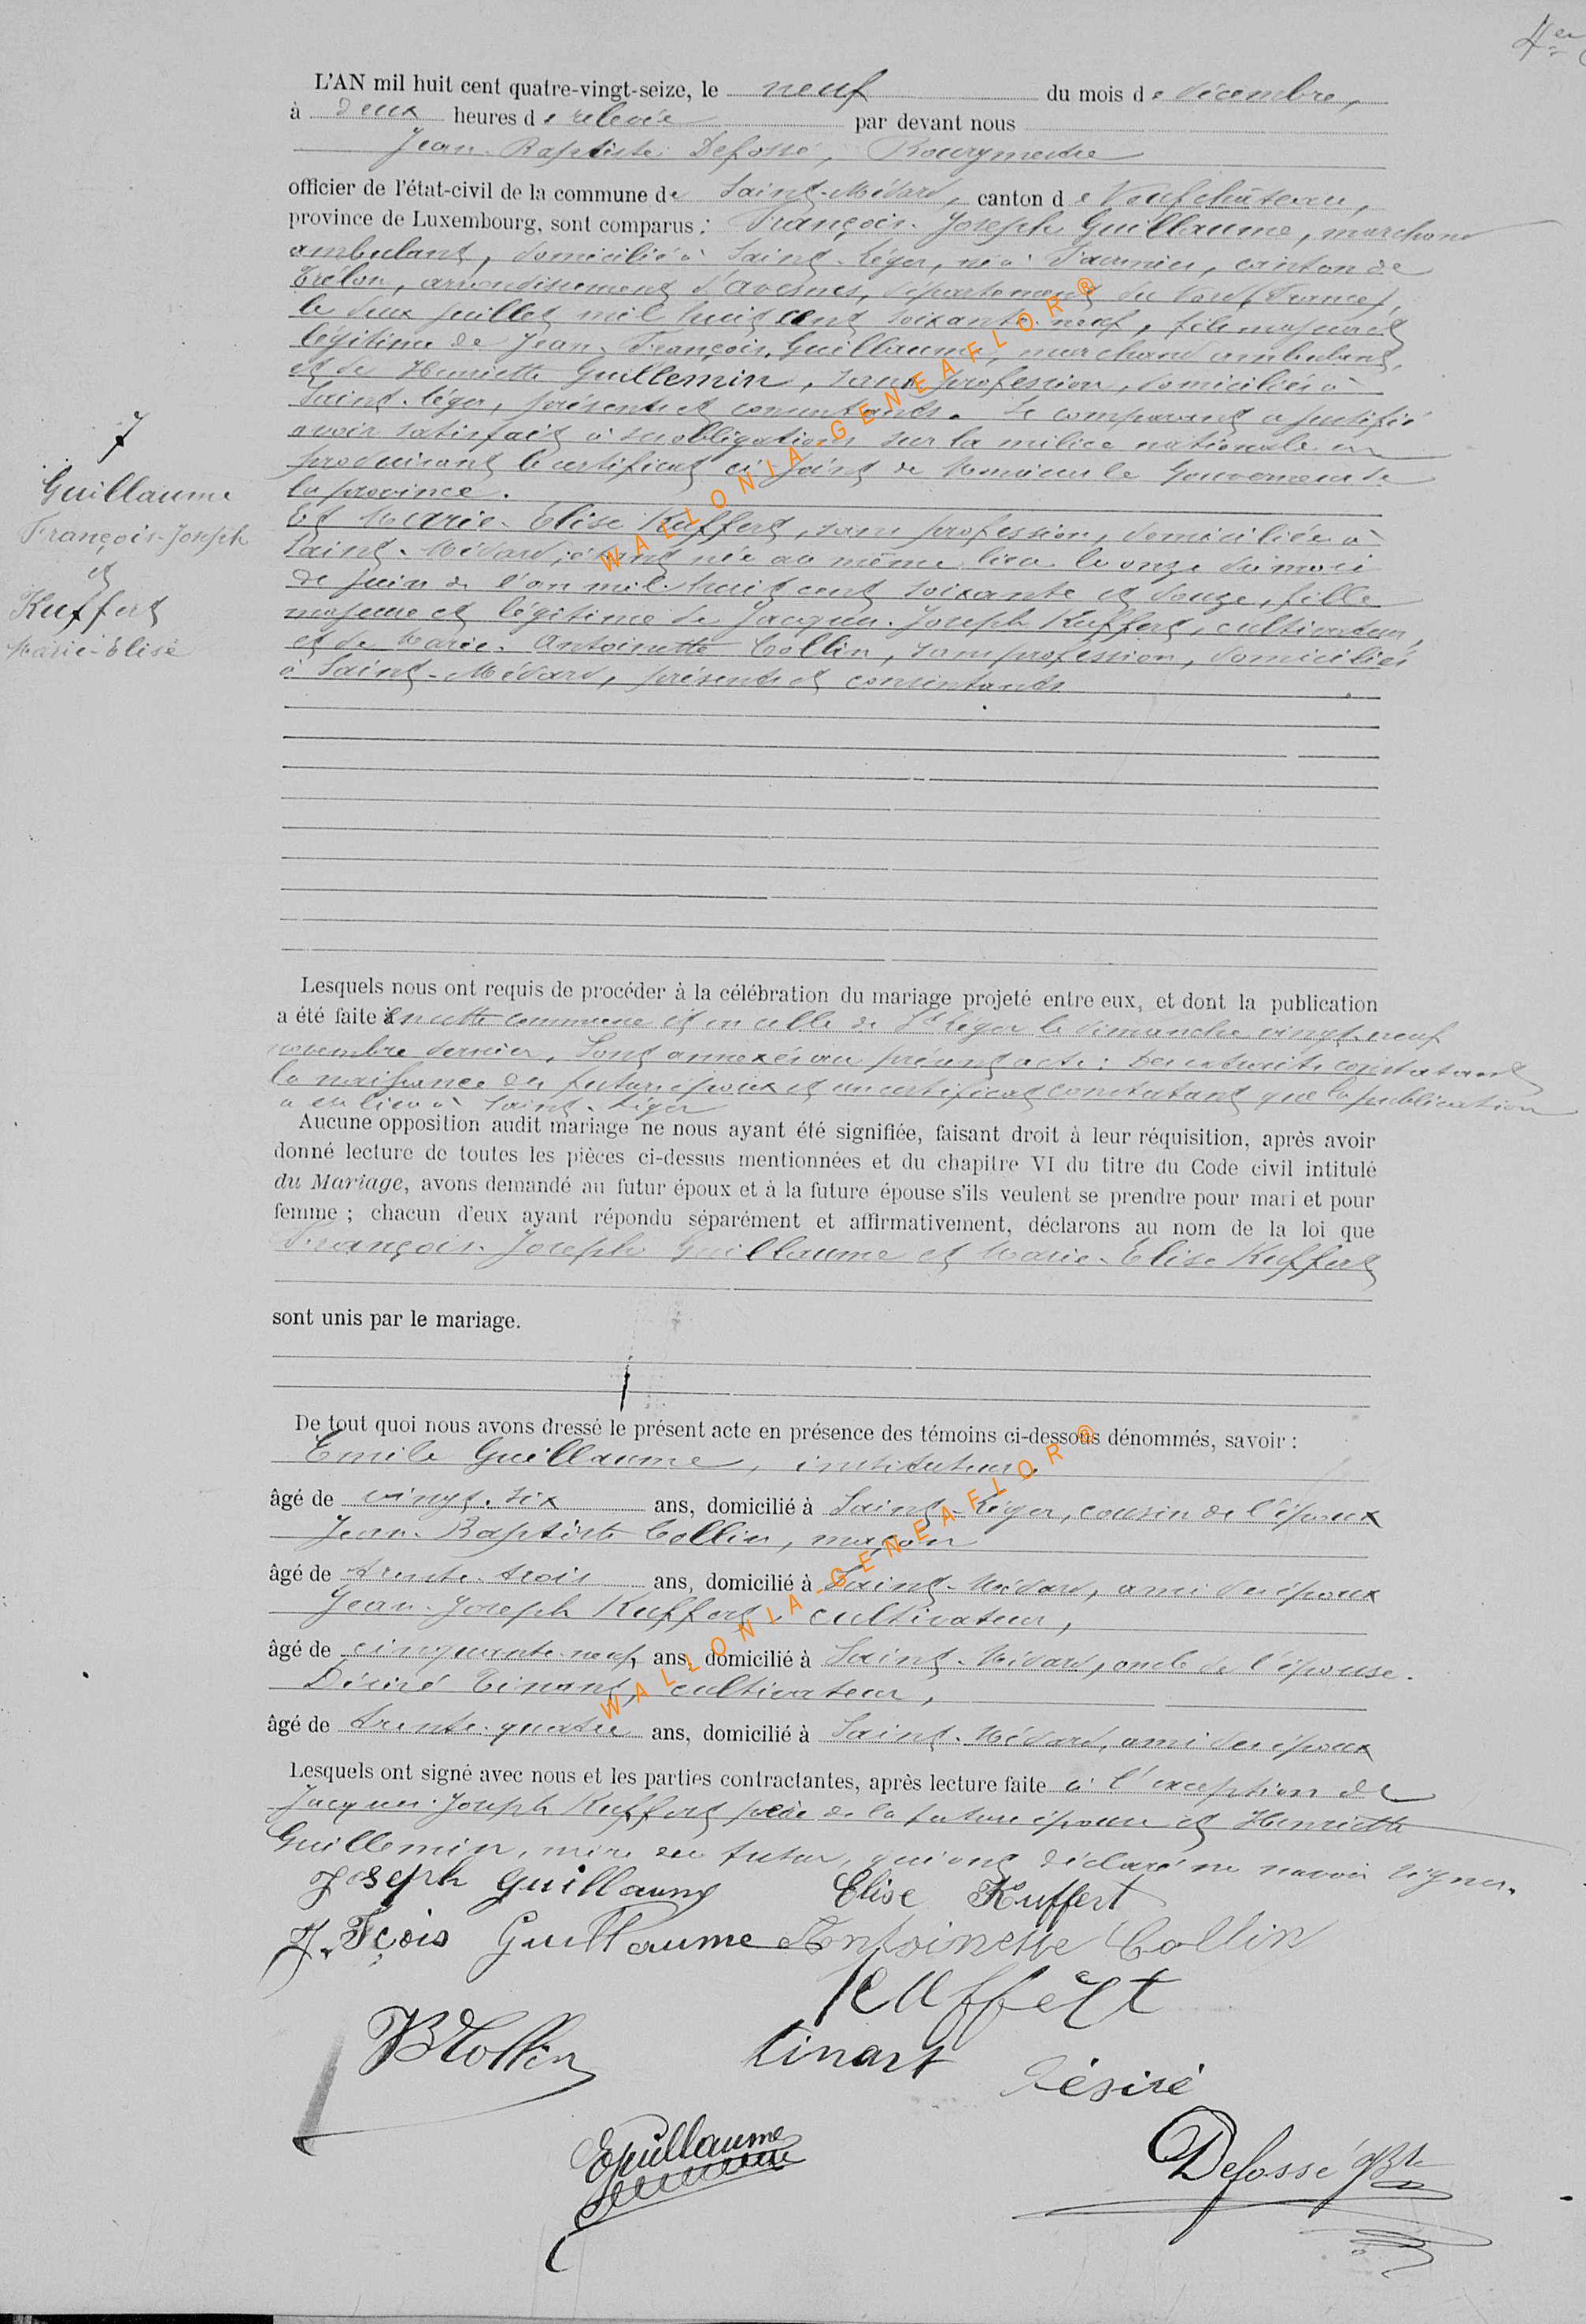 4er
L'AN mil huit cent quatre-vingt-seize, le neuf du mois de décembre,
à deux heures de relevée par devant nous
Jean-Baptiste Defossé, Bourgmestre
officier de l'état-civil de la commune de Saint-Médard, canton de Neufchâteau,
province de Luxembourg, sont comparus : François-Joseph Guillaume, marchand
ambulant, domicilié à Saint-Léger, né à canton de
Trélon, arrondissement d'Avesnes, département du Nord (France),
le deux juillet mil huit cent soixante-neuf, fils majeur et
légitime de Jean-François Guillaume, marchand ambulant,
et de Henriette Guillemin, sans profession, domiciliés à
Saint-Léger, présents et consentants. Le comparant a justifié
avoir satisfait à ses obligations sur la milice nationale en
produisant le certificat ci-joint de Monsieur le Gouverneur de
la province.
Et Marie-Elise Kuffert, sans profession, domiciliée à
Saint-Médard, étant née au même lieu le onze du mois
de juin de l'an mil huit cent soixante et douze, fille
majeure et légitime de Jacques-Joseph Kuffert, cultivateur,
et de Marie-Antoinette Collin, sans profession, domiciliés
à Saint-Médard, présents et consentants.
7
Guillaume
François-Joseph
et
Kuffert
Marie-Elise
Lesquels nous ont requis de procéder à la célébration du mariage projeté entre eux, et dont la publication
a été faite en cette commune et en celle de St Léger le dimanche vingt-neuf
novembre dernier. Sont annexés au présent acte : Des extraits constatant
la naissance des futurs époux et un certificat constatant que la publication
a eu lieu à Saint-Léger
Aucune opposition audit mariage ne nous ayant été signifiée, faisant droit à leur réquisition, après avoir
donné lecture de toutes les pièces ci-dessus mentionnées et du chapitre VI du titre du Code civil intitulé
du Mariage, avons demandé au futur époux et à la future épouse s'ils veulent se prendre pour mari et pour
femme ; chacun d'eux ayant répondu séparément et affirmativement, déclarons au nom de la loi que
François-Joseph Guillaume et Marie-Elise Kuffert
sont unis par le mariage.
De tout quoi nous avons dressé le présent acte en présence des témoins ci-dessous dénommés, savoir :
Emile Guillaume, instituteur,
âgé de vingt-six ans, domicilié à Saint-Léger, cousin de l'époux
Jean-Baptiste Collin, maçon
âgé de trente-trois ans, domicilié à Saint-Médard, ami des époux
Jean-Joseph Kuffert, cultivateur,
âgé de cinquante-neuf ans, domicilié à Saint-Médard, oncle de l'épouse.
Désiré Tinant, cultivateur,
âgé de trente-quatre ans, domicilié à Saint-Médard, ami des époux
Lesquels ont signé avec nous et les parties contractantes, après lecture faite à l'exception de
Jacques-Joseph Kuffert père de la future épouse et Henriette
Guillemin, mère du futur, qui ont déclaré ne savoir signer.
Joseph Guillaume Elise Kuffert
J. Fçois Guillaume Antoinette Collin
Kuffert
JBCollin Tinant Désiré
EGuillaume
Defossé JBte
WALLONIA-GENEAFLOR®
WALLONIA-GENEAFLOR®